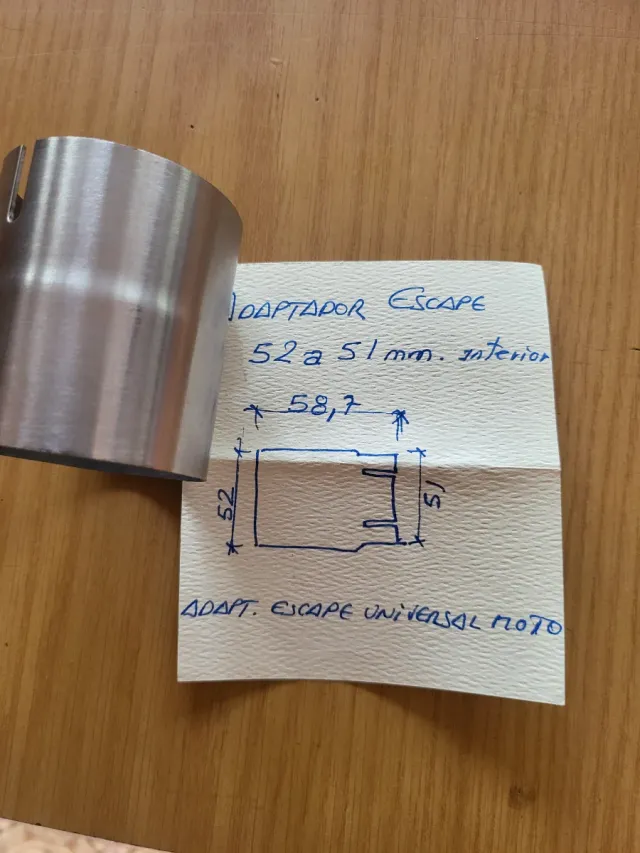 ADAPTADOR ESCAPE
52 a 51 mm. interior
58,7
52
51
ADAPT. ESCAPE UNIVERSAL MOTO